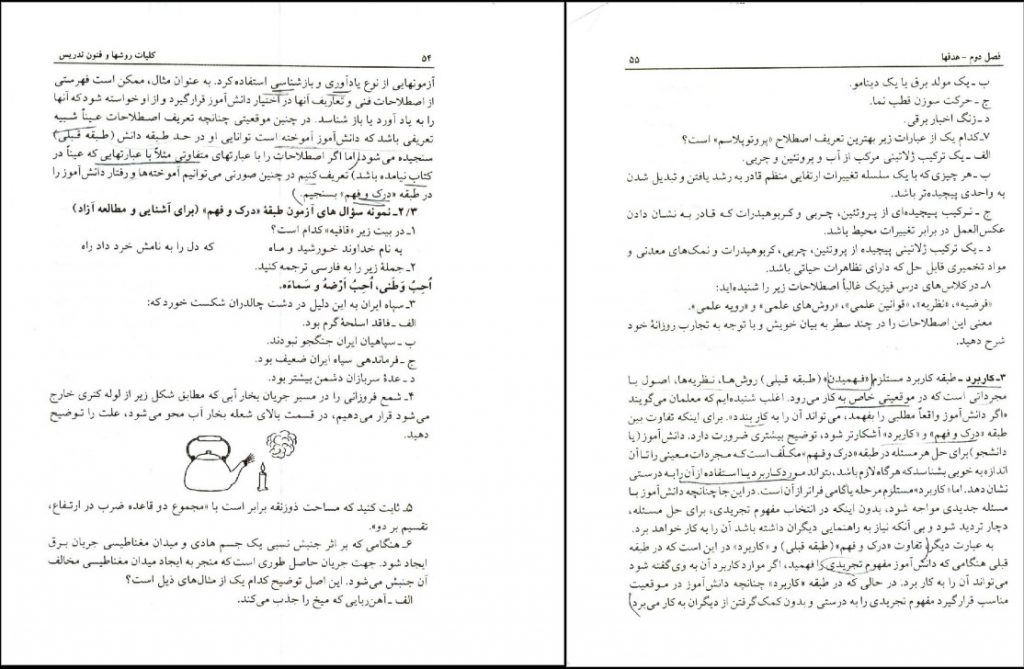 ۵۴ کلیات روشها و فنون تدریس
آزمونهایی از نوع یادآوری و بازشناسی استفاده کرد. به عنوان مثال، ممکن است فهرستی
از اصطلاحات فنی و تعاریف آنها در اختیار دانش‌آموز قرار گیرد و از او خواسته شود که آنها
را به یاد آورد یا باز شناسد. در چنین موقعیتی چنانچه تعریف اصطلاحات عیناً شبیه
تعریفی باشد که دانش‌آموز آموخته است توانایی او در حد طبقه دانش (طبقه قبلی)
سنجیده می‌شود، اما اگر اصطلاحات را با عبارتهای متفاوتی مثلاً با عبارتهایی که عیناً در
کتاب نیامده باشد) تعریف کنیم در چنین صورتی می‌توانیم آموخته‌ها و رفتار دانش‌آموز را
در طبقه «درک و فهم» بسنجیم.
۲/۳ـ نمونه سؤال های آزمون طبقهٔ «درک و فهم» (برای آشنایی و مطالعه آزاد)
۱ـ در بیت زیر «قافیه» کدام است؟
به نام خداوند خورشید و ماه که دل را به نامش خرد داد راه
۲ـ جملهٔ زیر را به فارسی ترجمه کنید.
اُحِبُّ وَطَنی، اُحِبُّ اَرْضَهُ وَ سَماءَه.
۳ـ سپاه ایران به این دلیل در دشت چالدران شکست خورد که:
الف ـ فاقد اسلحهٔ گرم بود.
ب ـ سپاهیان ایران جنگجو نبودند.
ج ـ فرماندهی سپاه ایران ضعیف بود.
د ـ عدهٔ سربازان دشمن بیشتر بود.
۴ـ شمع فروزانی را در مسیر جریان بخار آبی که مطابق شکل زیر از لوله کتری خارج
می‌شود قرار می‌دهیم، در قسمت بالای شعله بخار آب محو می‌شود، علت را توضیح
دهید.
۵ـ ثابت کنید که مساحت ذوزنقه برابر است با «مجموع دو قاعده ضرب در ارتفاع،
تقسیم بر دو».
۶ـ هنگامی که بر اثر جنبش نسبی یک جسم هادی و میدان مغناطیسی جریان برق
ایجاد شود. جهت جریان حاصل طوری است که منجر به ایجاد میدان مغناطیسی مخالف
آن جنبش می‌شود. این اصل توضیح کدام یک از مثال‌های ذیل است؟
الف ـ آهن‌ربایی که میخ را جذب می‌کند.
فصل دوم - هدفها ۵۵
ب ـ یک مولد برق یا یک دینامو.
ج ـ حرکت سوزن قطب نما.
د ـ زنگ اخبار برقی.
۷ـ کدام یک از عبارات زیر بهترین تعریف اصطلاح «پروتوپلاسم» است؟
الف ـ یک ترکیب ژلاتینی مرکب از آب و پروتئین و چربی.
ب ـ هر چیزی که با یک سلسله تغییرات ارتقایی منظم قادر به رشد یافتن و تبدیل شدن
به واحدی پیچیده‌تر باشد.
ج ـ ترکیب پیچیده‌ای از پروتئین، چربی و کربوهیدرات که قادر به نشان دادن
عکس‌العمل در برابر تغییرات محیط باشد.
د ـ یک ترکیب ژلاتینی پیچیده از پروتئین، چربی، کربوهیدرات و نمک‌های معدنی و
مواد تخمیری قابل حل که دارای تظاهرات حیاتی باشد.
۸ـ در کلاس‌های درس فیزیک غالباً اصطلاحات زیر را شنیده‌اید:
«فرضیه»، «نظریه»، «قوانین علمی»، «روش‌های علمی» و «رویه علمی».
معنی این اصطلاحات را در چند سطر به بیان خویش و با توجه به تجارب روزانهٔ خود
شرح دهید.
۳ـ کاربرد ـ طبقه کاربرد مستلزم «فهمیدن» (طبقه قبلی) روش‌ها، نظریه‌ها، اصول یا
مجرداتی است که در موقعیتی خاص به کار می‌رود. اغلب شنیده‌ایم که معلمان می‌گویند
«اگر دانش‌آموز واقعاً مطلبی را بفهمد، می‌تواند آن را به کار بندد». برای اینکه تفاوت بین
طبقه «درک و فهم» و «کاربرد» آشکارتر شود، توضیح بیشتری ضرورت دارد. دانش‌آموز (یا
دانشجو) برای حل هر مسئله در طبقه «درک و فهم» مکلف است که مجردات معینی را تا آن
اندازه به خوبی بشناسد که هر گاه لازم باشد، بتواند مورد کاربرد یا استفاده از آن را به درستی
نشان دهد. اما «کاربرد» مستلزم مرحله یا گامی فراتر از آن است. در این جا چنانچه دانش‌آموز با
مسئله جدیدی مواجه شود، بدون اینکه در انتخاب مفهوم تجریدی، برای حل مسئله،
دچار تردید شود و بی آنکه نیاز به راهنمایی دیگران داشته باشد آن را به کار خواهد برد.
به عبارت دیگر تفاوت «درک و فهم» (طبقه قبلی) و «کاربرد» در این است که در طبقه
قبلی هنگامی که دانش‌آموز مفهوم تجریدی را فهمید، اگر موارد کاربرد آن به وی گفته شود
می‌تواند آن را به کار برد. در حالی که در طبقه «کاربرد» چنانچه دانش‌آموز در موقعیت
مناسب قرار گیرد مفهوم تجریدی را به درستی و بدون کمک گرفتن از دیگران به کار می‌برد